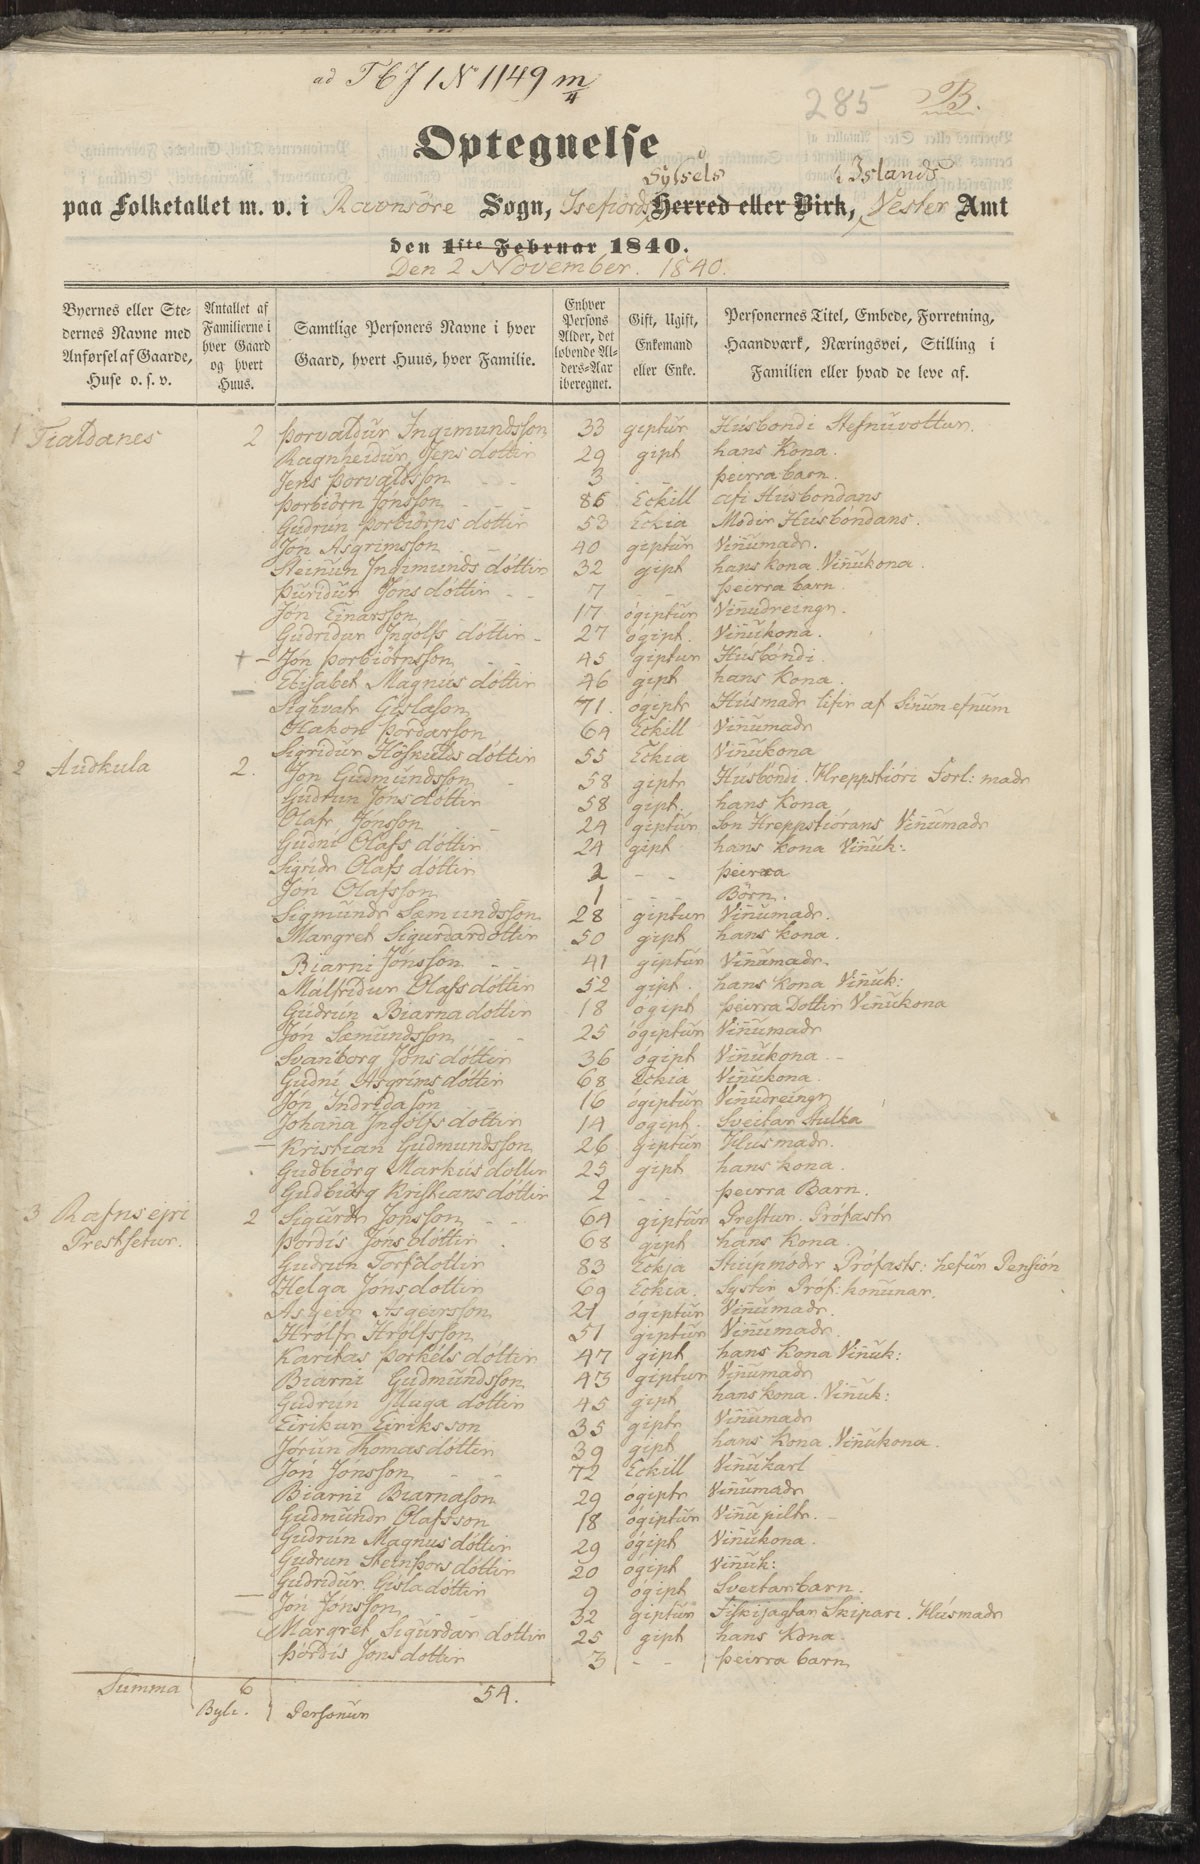 ad T b J 1 No 1149 m/4
285 B.
Optegnelse
Sysels i Islands
paa Folketallet m. v. i Ravnsöre Sogn, Isefiords Herred eller Birk, Vester Amt
den 1ste Februar 1840.
Den 2 November. 1840.
Byernes eller Stedernes Navne med Anførsel af Gaarde, Huse o. s. v. Antallet af Familierne i hver Gaard og hvert Huus. Samtlige Personers Navne i hver Gaard, hvert Huus, hver Familie. Enhver Persons Alder, det løbende Alders-Aar iberegnet. Gift, Ugift, Enkemand eller Enke. Personernes Titel, Embede, Forretning, Haandværk, Næringsvei, Stilling i Familien eller hvad de leve af.
1 Tialdanes 2 Þorvaldur Ingimundsson 33 giptur Húsbondi Stefnuvottur.
Ragnheidur Jens dottir 29 gipt hans Kona.
Jens Þorvaldsson - - 3 - - þeirra barn.
Þorbiörn Jónsson - - 86 Eckill afi Húsbondans
Gudrún Þorbiörns dóttir 53 Eckia Módir Húsbóndans.
Jón Asgrimsson - - 40 giptur Viñumadr.
Steinun Ingimunds dóttir 32 gipt hans kona Viñukona.
Þuridur Jóns dóttir - - 7 - - þeirra barn.
Jón Einarsson 17 ógiptur Viñudreingr.
Gudridur Ingólfs dóttir - 27 ógipt. Viñukona.
+ - Jón Þorbiörnsson - - 45 giptur Húsbóndi.
Elisabet Magnús dóttir 46 gipt hans kona.
Sighvatr Gislason 71. ógiptr Húsmadr lifir af Sinum efnum
Hakon Þordarson 64 Eckill Viñumadr
Sigridur Höskulds dóttir 55 Eckia Viñukona
2 Audkula 2. Jón Gudmundsson - 58 giptr Húsbóndi. Hreppstióri Forl: madr
Gudrun Jóns dóttir 58 gipt. hans kona
Olafr Jónsson - 24 giptur Son Hreppstiórans Viñumadr
Gudni Olafs dóttir 24 gipt hans kona Viñuk:
Sigridr Olafs dóttir 2 - - þeirra
Jón Olafsson 1 - - Börn.
Sigmundr Sæmundsson 28 giptur Viñumadr.
Margret Sigurdardottir 50 gipt hans kona.
Biarni Jónsson - - 41 giptur Viñumadr.
Málfridur Olafsdóttir 52 gipt. hans kona Viñuk:
Gudrún Biarnadottir 18 ógipt þeirra Dottir Viñukona
Jón Sæmundsson - - 25 ógiptur Viñumadr
Svanborg Jóns dóttir 36 ógipt Viñukona -
Gudni Asgrims dóttir 68 Eckia Viñukona.
Jón Indridason - - 16 ógiptur Viñudreingr
Johana Ingólfs dottir 14 ogipt. Sveitar Stulka
- Kristian Gudmundsson 26 giptur Husmadr.
Gudbiörg Markús dottir 25 gipt hans kona.
Gudbiörg Kristians dóttir 2 - - þeirra Barn.
3 Rafnseyri 2 Sigurdr Jónsson - - 64 giptur Prestur. Prófastr
Prestsetur. Þórdis Jóns dóttir . 68 gipt hans kona.
Gudrun Torfdottir 83 Eckja Stiúpmódir Prófasts: hefur Pensión
Helga Jónsdottir 69 Eckia. Systir Próf: konunar.
Asgeir Asgeirsson 21 ógiptur Viñumadr.
Hrólfr Hrólfsson 51 giptur Viñumadr
Karitas Þorkéls dottir 47 gipt hans Kona Viñuk:
Biarni Gudmundsson 43 giptur Viñumadr
Gudrun Illuga dóttir 45 gipt hans kona. Viñuk:
Eirikur Eiriksson 35 giptr Viñumadr
Jórun Thomasdóttir 39 gipt hans kona. Viñukona.
Jón Jónsson - - 72 Eckill Viñukarl
Biarni Biarnason 29 ógiptr Viñumadr
Gudmundr Olafsson 18 ógiptur Viñupiltr. -
Gudrún Magnus dóttir 29 ógipt Viñukona.
Gudrun Steinþors dóttir 20 ógipt Viñuk:
Gudridur Gisladóttir 9 ógipt Sveitarbarn.
- Jón Jónsson 32 giptur Fiskijagtar Skipari. Húsmadr
Margret Sigurdar dottir 25 gipt hans kona.
Þórdis Jónsdottir 3 - - þeirra barn
Summa 6 54.
Byli. Personur